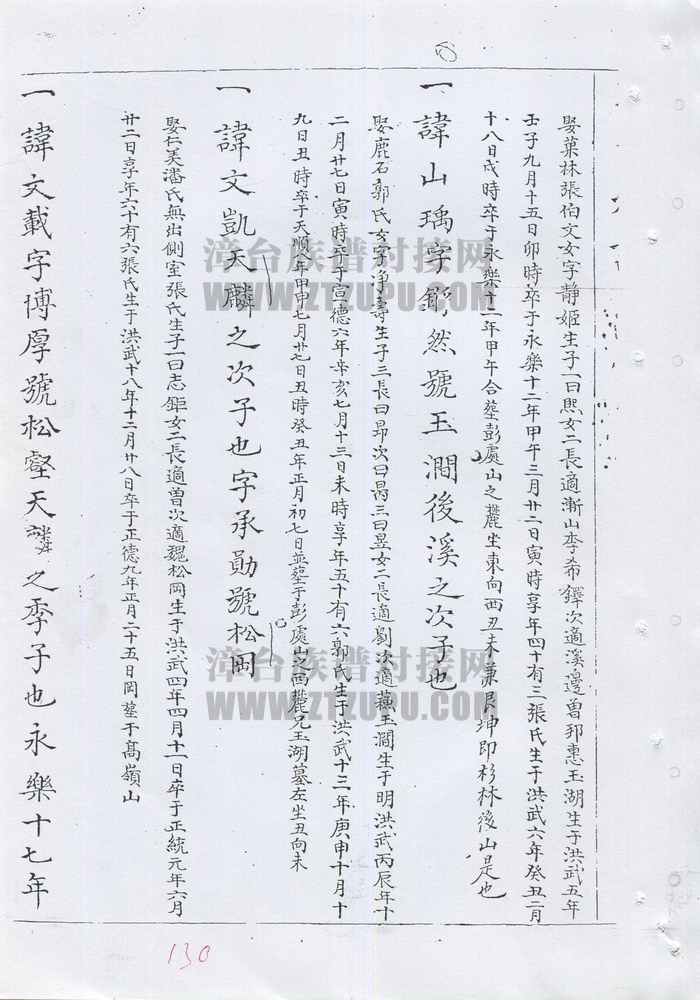 娶菓林張伯文女字靜姬生子一曰熙女二長適漸山李希鐸次適溪邊曽邦惠玉湖生于洪武五年
壬子九月十五日卯時卒于永樂十二年甲午三月廿二日寅時享年四十有三張氏生于洪武六年癸丑二月
十八日戌時卒于永樂十二年甲午合塟彭處山之麓坐東向西丑未兼艮坤即杉林後山是也
一諱山瑀字鏘然號玉澗後溪之次子也
娶鹿石郭氏女字淨壽生子三長曰昴次曰暠三曰昱女二長適劉次適蘓玉澗生于明洪武丙辰年十
二月廿七日寅時卒于宣德六年辛亥七月十三日未時享年五十有六郭氏生于洪武十三年庚申十月十
九日丑時卒于天順八年甲申七月廿七日丑時癸丑年正月初七日並塟于彭處山之西麓兄玉湖墓左坐丑向未
一諱文凱天麟之次子也字承勛號松岡
娶仁美潘氏無出側室張氏生子一曰志鉅女二長適曽次適魏松岡生于洪武四年四月十一日卒于正統元年六月
廿二日享年六十有六張氏生于洪武十八年十二月廿八日卒于正德九年正月二十五日岡塟于高嶺山
一諱文載字博厚號松壑天麟之季子也永樂十七年
漳台族谱对接网
WWW.ZTZUPU.COM
漳台族谱对接网
WWW.ZTZUPU.COM
130